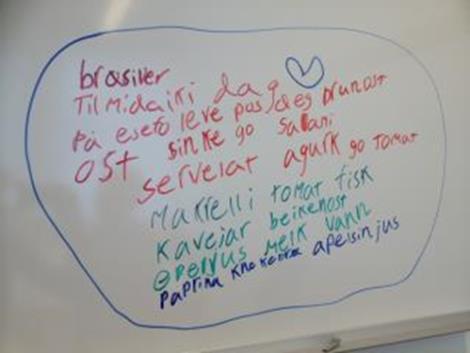 brasiler
Til midaiki dag
på eseto leve pos deg brunost
ost sinke go salami
servelat agurk go tomat
Makrelli tomat fisk
kaveiar beikenost
epeljus melk vann
paprika knekebrø apelsinjus